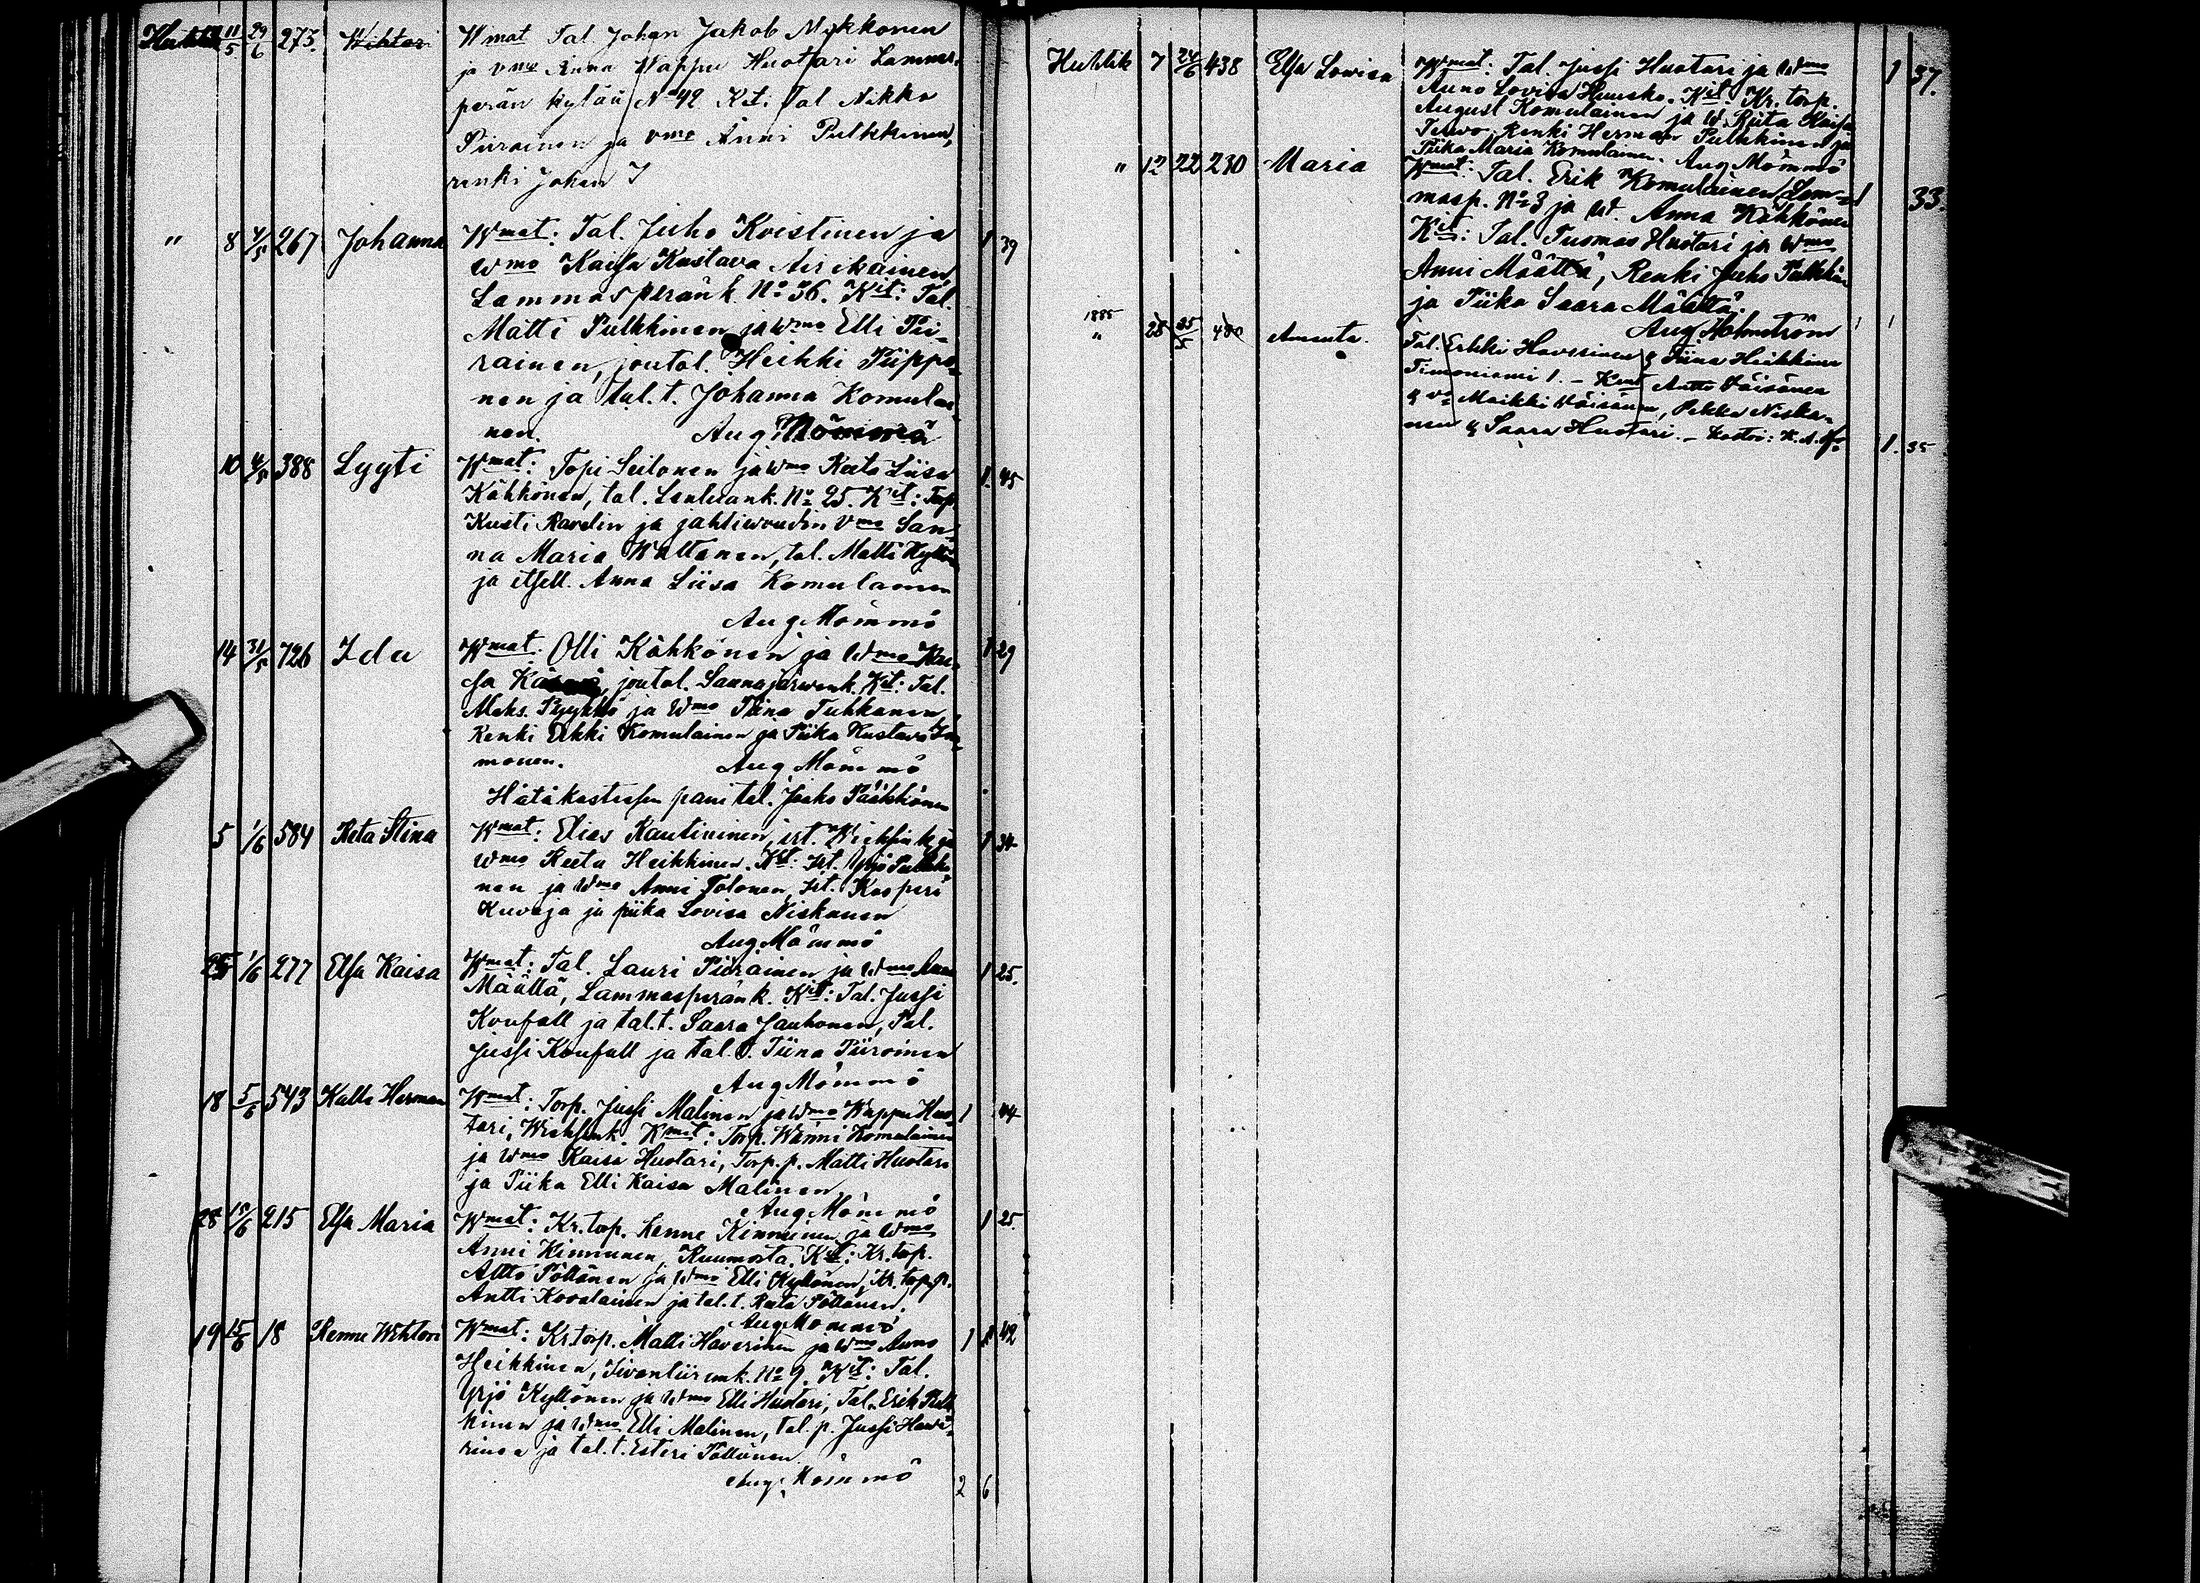 Huhtik 11/5 29/6 273. Wihtori Wmat Tal Johan Jakob Mykkonen
ja vmo Anna Wappu Huotari Lammas-
perän kylän No 42 Kit. Tal Nikko
Piirainen ja vmo Anni Pulkkinen,
renki Johan I
" 8 4/5 267 Johanna Wmat: Tal. Juho Kvistinen ja 1 39
wmo Kaisa Kustava Airikainen,
Lammasperänk. No 36. Kit: Tal.
Matti Pulkkinen ja wmo Elli Pii-
rainen, joutol. Heikki Piippo-
nen ja tal.t. Johanna Komulai-
nen. Aug Mömmö
10 4/5 388 Lyyti Wmat: Topi Seilonen ja wmo Reeta Liisa 1. 45
Kähkönen, tal. No 25. Kit: Torp
Kusti Ravelin ja jahtiwoudin Vmo San-
na Maria Wattanen, tal. Matti Kyllön
ja itsell. Anna Liisa Komulainen
Aug. Mömmö
14 31/5 726 Ida Wmat: Olli Kähkönen ja Wmo Kai- 1 29
sa joutol. Saunajärwenk. Kit: Tal.
Aleks. Pyykkö ja Wmo Tiina Tuhkanen,
Renki Erkki Komulainen ja Piika Kustava
monen. Aug Mömmö
Hätäkasteesen pani tal. Jaako Pääkkönen
5 1/6 584 Reta Stina Wmat: Elias Rautiainen, irt. ja 1 34
wmo Reeta Heikkinen. Kit: Irt. Yrjö Pulkki-
nen ja Wmo Anni Tolonen, irt. Kasperi
Kuvaja ja piika Lovisa Niskanen
Aug. Mömmö
25 1/6 277 Elsa Kaisa Wmat: Tal. Lauri Piirainen ja Wmo Anna 1 25.
Määttä, Lammasperänk. Kit: Tal. Jussi
Konfall ja tal.t. Saara Jauhonen, Tal.
Jussi Konfall ja tal.t. Tiina Piirainen
Aug Mömmö
18 5/6 543 Kalle Herman Wmat: Torp. Jussi Malinen ja wmo Wappu Huo- 1 44
tari, Kmit: Torp. Wänni Komulainen
ja Wmo Kaisa Huotari, Torp.p. Matti Huotari
ja Piika Elli Kaisa Malinen
Aug Mömmö
28 15/6 215 Elsa Maria Wmat: Kr. torp. Lenne Kinnunen ja Wmo 1 25.
Anni Kinnunen, Kuumosta. Kit: Kr. torp.
Atto Töllönen ja wmo Elli Kyllönen, Kr. torp.p.
Antti Kovalainen ja tal.t. Reeta Töllönen.
Aug Mömmö
19 15/6 18 Renne Wihtori Wmat: Kr torp. Matti Haverinen ja wmo Anna 1 42
Heikkinen, No 9. Kit: Tal.
Yrjö Kyllönen ja Wmo Elli Huotari, Tal. Erik Pulk-
kinen ja Wmo Elli Malinen, tal. p. Jussi Have-
rinen ja tal.t. Esteri Töllönen
Aug. Mömmö 2 6
Huhtik 7 24/6 438 Elsa Lowisa Wmat: Tal. Jussi Huotari ja Wmo 1 37.
Anna Lovisa Huusko. Kit: Kr. torp.
August Komulainen ja W. Riita Kaisa
Tervo, Renki Herman Pulkkinen ja
Piika Maria Komulainen. Aug Mömmö
" 12 22 230 Maria Wmat: Tal. Erik Komulainen Lam- 1 33.
masp. No 3 ja W. Anna Kähkönen
Kit: Tal. Tuomas Huotari ja Wmo
Anni Määttä, Renki Juho Pulkkin
ja Piika Saara Määttä.
Aug Holmström
1885
" 28 25/5 480 Amanta. Tal. Erkki Haverinen & Tiina Heikkinen
Timoniemi 1. – Kmt Antti Väisänen
& va Maikki Väisänen, Pekka Niska-
nen & Saara Huotari. – Kastoi: 1. 35